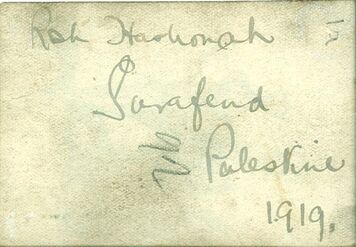 Rosh Hashonah
Sarafend
Palestine
1919.